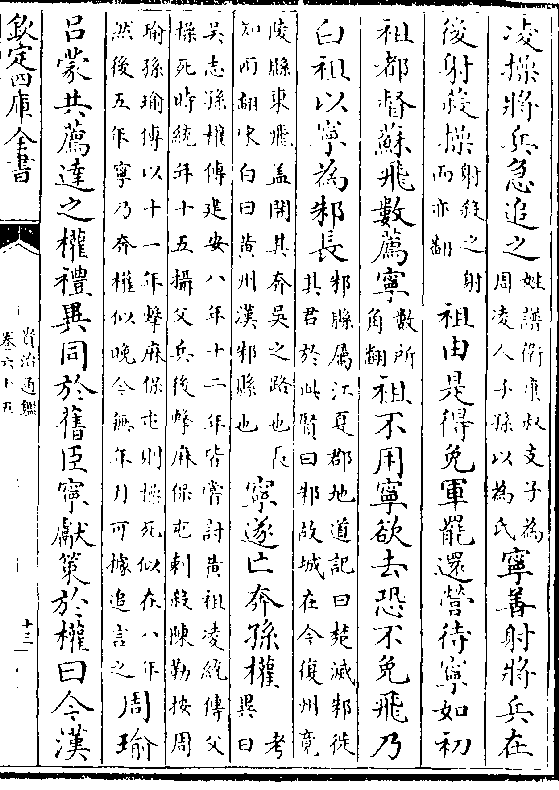 凌操將兵急追之姓譜衛康叔支子為周凌人子孫以為氏寧善射將兵在
後射殺操射殺之射而亦翻祖由是得免軍罷還營待寧如初
祖都督蘇飛數薦寧數所角翻祖不用寧欲去恐不免飛乃
白祖以寧為邾長邾縣屬江夏郡地道記曰楚滅邾徙其君於此賢曰邾故城在今復州竟
陵縣東飛盖開其奔吳之路也長知兩翻宋白曰黄州漢邾縣也寧遂亡奔孫權考異曰
吳志孫權傳建安八年十二年皆嘗討黄祖凌統傳父操死時統年十五攝父兵後擊麻保屯刺殺陳勤按周
瑜孫瑜傳以十一年擊麻保屯則操死似在八年然後五年寧乃奔權似晚今無年月可據追言之周瑜
呂蒙共薦達之權禮異同於舊臣寧獻策於權曰今漢
欽定四庫全書
資治通鑑
卷六十五
十三